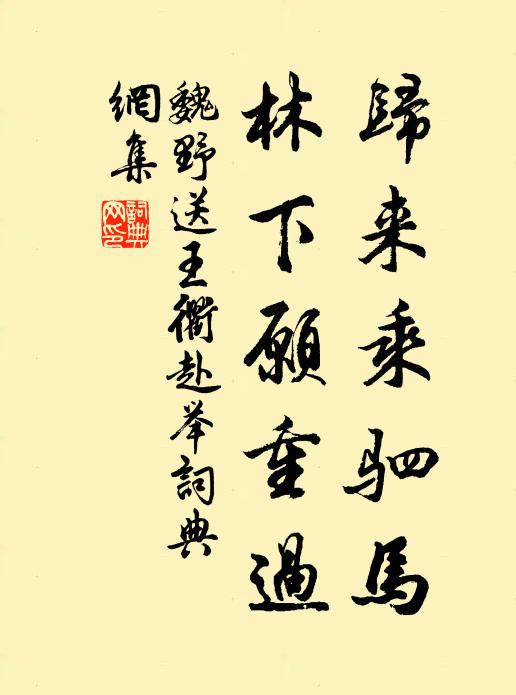 歸来乘駟馬
林下願重過
魏野送王衢赴举詞典
網集
詞典网印